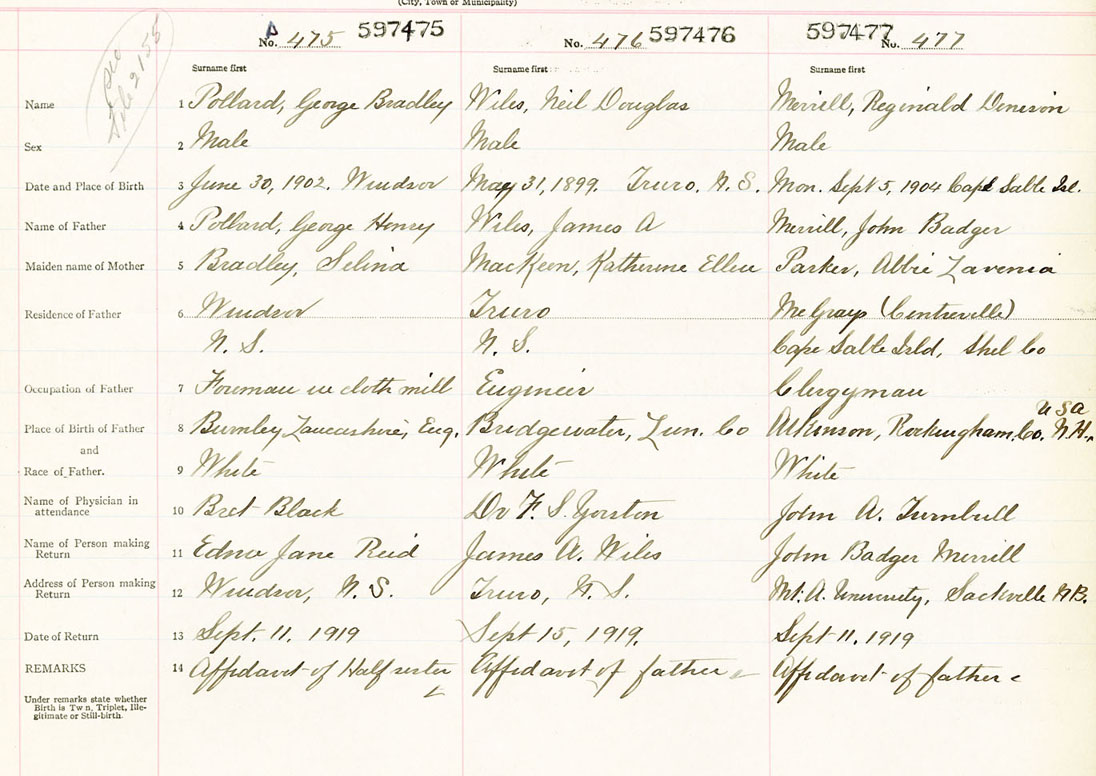 (City, Town or Municipality)
No. 475 597475 No. 476 597476 597477 No. 477
Surname first Surname first Surname first
Name 1 Pollard, George Bradley Wiles, Neil Douglas Merrill, Reginald Denison
Sex 2 Male Male Male
Date and Place of Birth 3 June 30, 1902. Windsor May 31, 1899. Truro, N. S. Mon. Sept 5, 1904 Cape Sable Isl.
Name of Father 4 Pollard, George Henry Wiles, James A Merrill, John Badger
Maiden name of Mother 5 Bradley, Selina MacKeen, Katherine Ellen Parker, Abbie Lavenia
Residence of Father 6 Windsor Truro McGrays (Centreville)
N. S. N. S. Cape Sable Isld, Shel Co
Occupation of Father 7 Foreman in cloth mill Engineer Clergyman
U S A
Place of Birth of Father 8 Burnley Lancashire, Eng. Bridgewater, Lun. Co Atkinson, Rockingham Co. N.H.
and
Race of Father. 9 White White White
Name of Physician in attendance 10 Bret Black Dr F. S. Yorston John A. Turnbull
Name of Person making Return 11 Edna Jane Reid James A. Wiles John Badger Merrill
Address of Person making Return 12 Windsor, N. S. Truro, N. S. Mt. A. University, Sackville N.B.
Date of Return 13 Sept. 11, 1919 Sept 15, 1919. Sept 11, 1919
REMARKS 14 Affidavit of Half sister Affidavit of father Affidavit of father
Under remarks state whether
Birth is Tw n, Triplet, Ille-
gitimate or Still-birth.